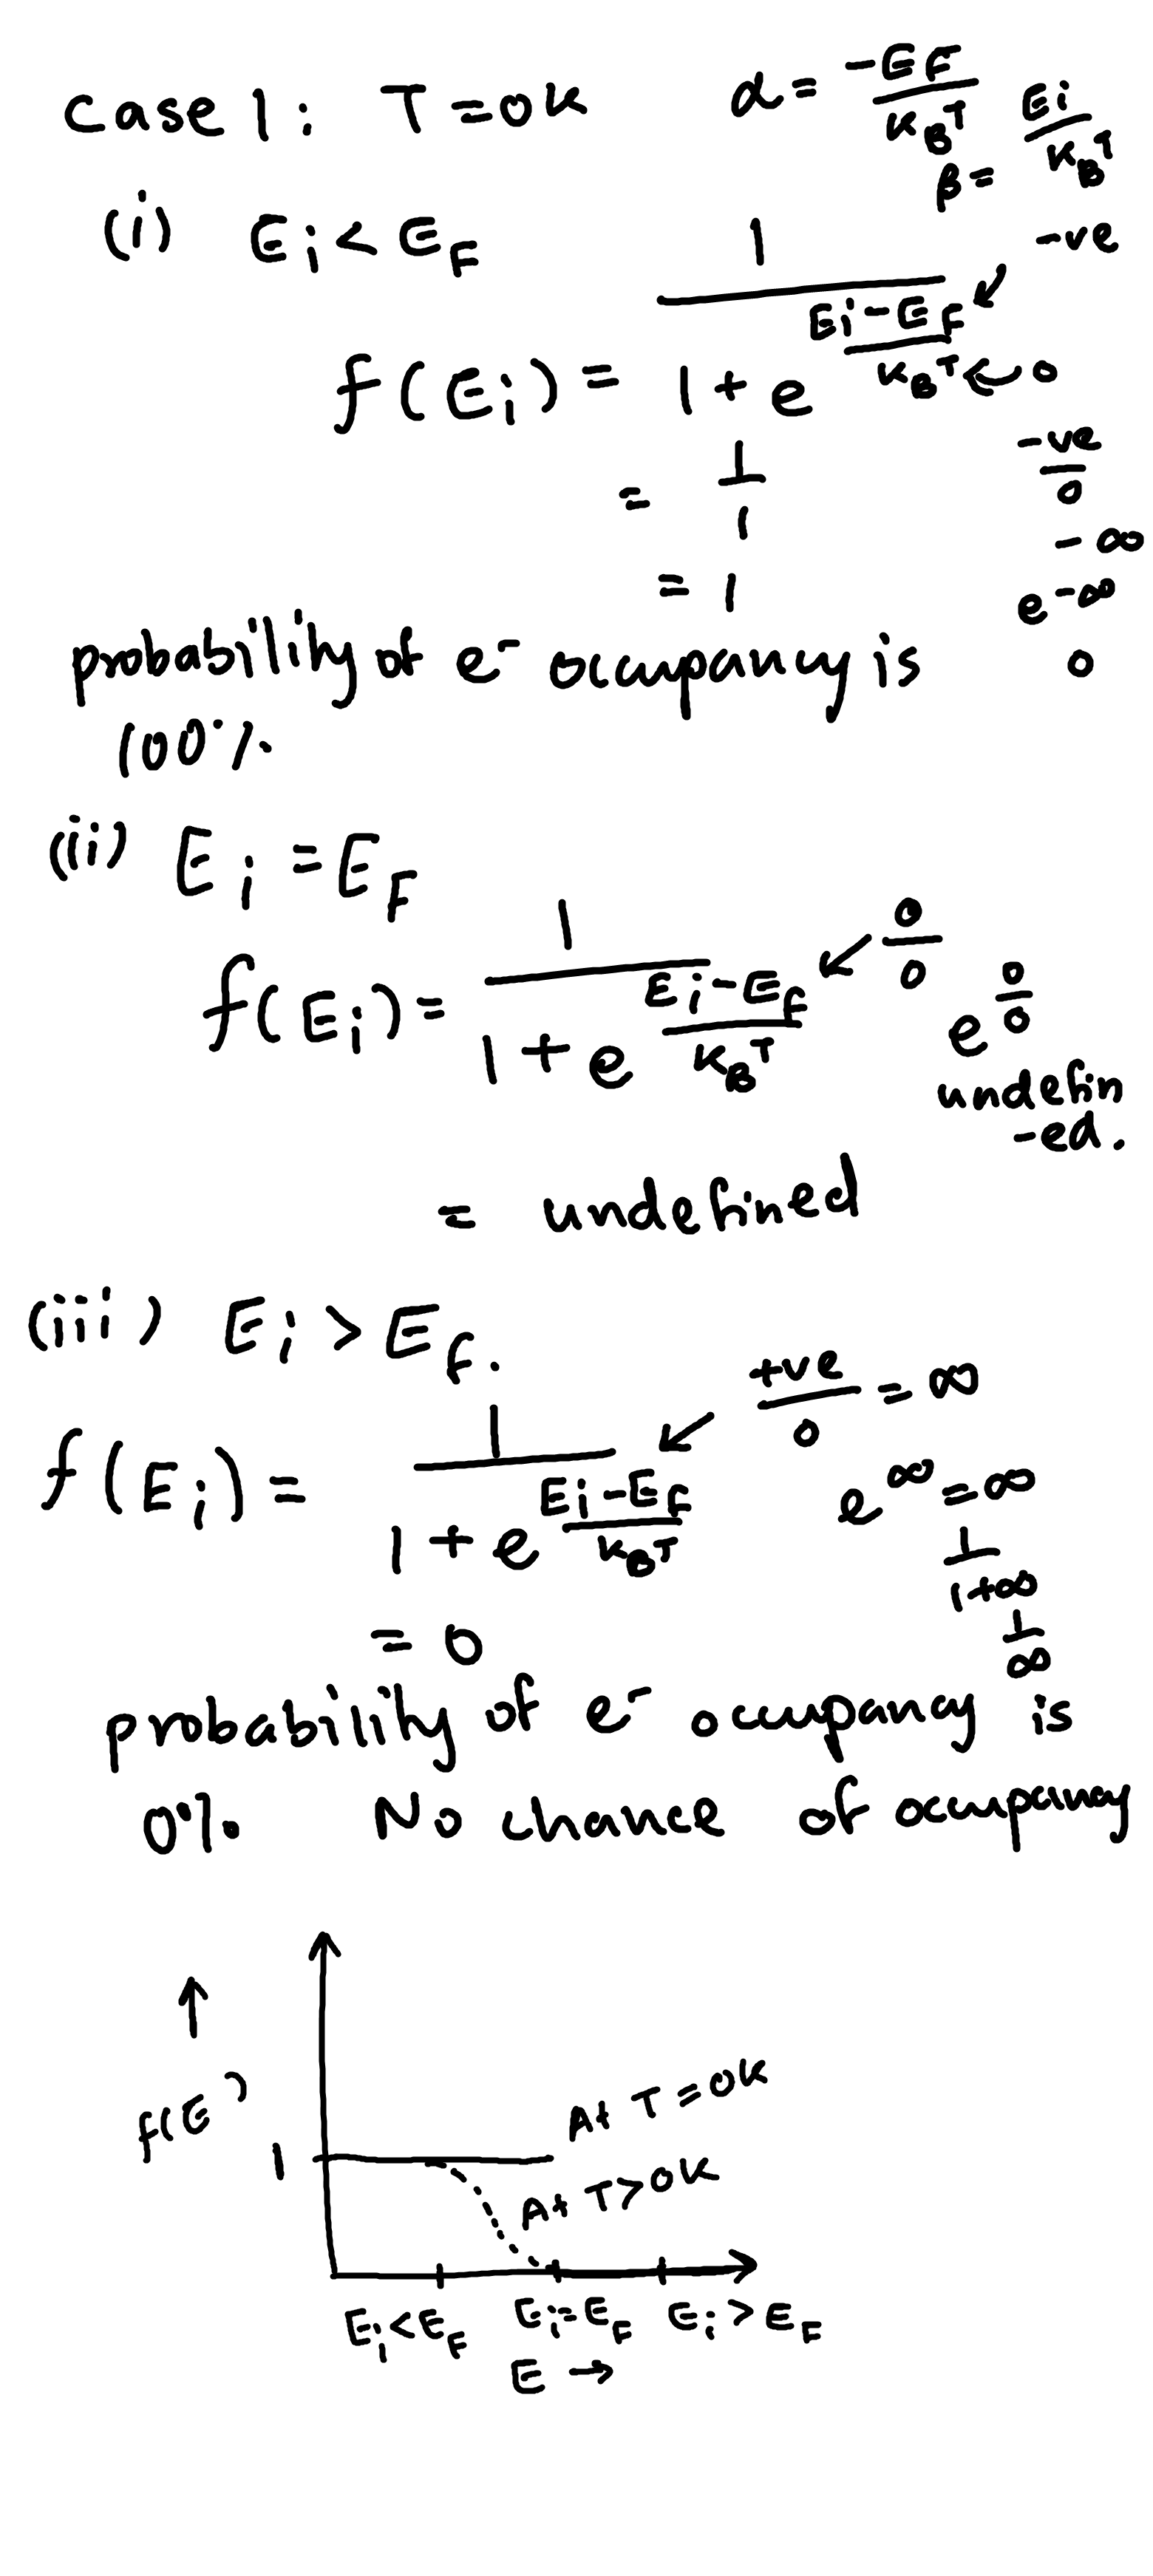 case 1 : T = 0K α = -EF/KBT
β = Ei/KBT
(i) Ei < EF
-ve
f(Ei) = 1/(1 + e^((Ei-EF)/KBT)) ← 0
= 1/1
-ve/0
-∞
= 1
e^-∞
probability of e⁻ occupancy is
0
100%.
(ii) Ei = EF
f(Ei) = 1/(1 + e^((Ei-EF)/KBT)) ↙ 0/0
e^(0/0)
undefin
-ed.
= undefined
(iii) Ei > EF.
+ve/0 = ∞
f(Ei) = 1/(1 + e^((Ei-EF)/KBT))
e^∞ = ∞
1/(1+∞)
1/∞
= 0
probability of e⁻ occupancy is
0% No chance of occupancy
↑
f(E)
At T = 0K
1
At T > 0K
Ei < EF Ei = EF Ei > EF
E →